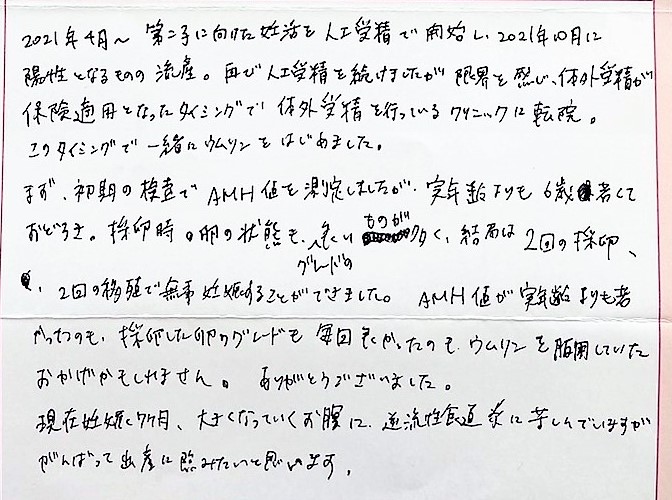 2021年4月〜 第二子に向けた妊活を人工受精で開始し、2021年10月に
陽性となるものの流産。再び人工受精を続けましたが限界を感じ、体外受精が
保険適用となったタイミングで体外受精を行っているクリニックに転院。
このタイミングで一緒にウムリンをはじめました。
まず、初期の検査でAMH値を測定しましたが、実年齢よりも6歳若くて
おどろき。採卵時の卵の状態も、グレードの良いものが多く、結局は2回の採卵、
2回の移殖で無事妊娠することができました。AMH値が実年齢よりも若
かったのも、採卵した卵のグレードも毎回良かったのも、ウムリンを服用していた
おかげかもしれません。ありがとうございました。
現在妊娠7ヶ月、大きくなっていくお腹に、逆流性食道炎に苦しんでいますが
がんばって出産に臨みたいと思います。